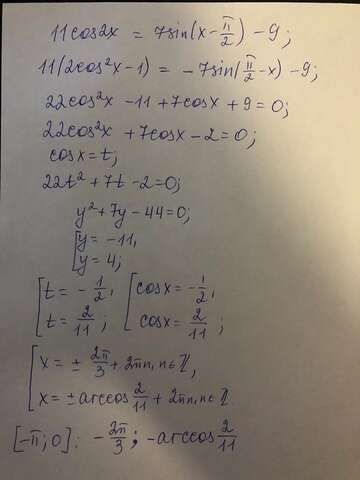 11cos2x = 7sin(x - π/2) - 9;
11(2cos²x - 1) = -7sin(π/2 - x) - 9;
22cos²x - 11 + 7cosx + 9 = 0;
22cos²x + 7cosx - 2 = 0;
cosx = t;
22t² + 7t - 2 = 0;
y² + 7y - 44 = 0;
[y = -11,
[y = 4;
[t = -1/2, [cosx = -1/2,
[t = 2/11; [cosx = 2/11;
[x = ± 2π/3 + 2πn, n∈ℤ,
[x = ± arccos 2/11 + 2πn, n∈ℤ.
[-π; 0]: -2π/3; -arccos 2/11